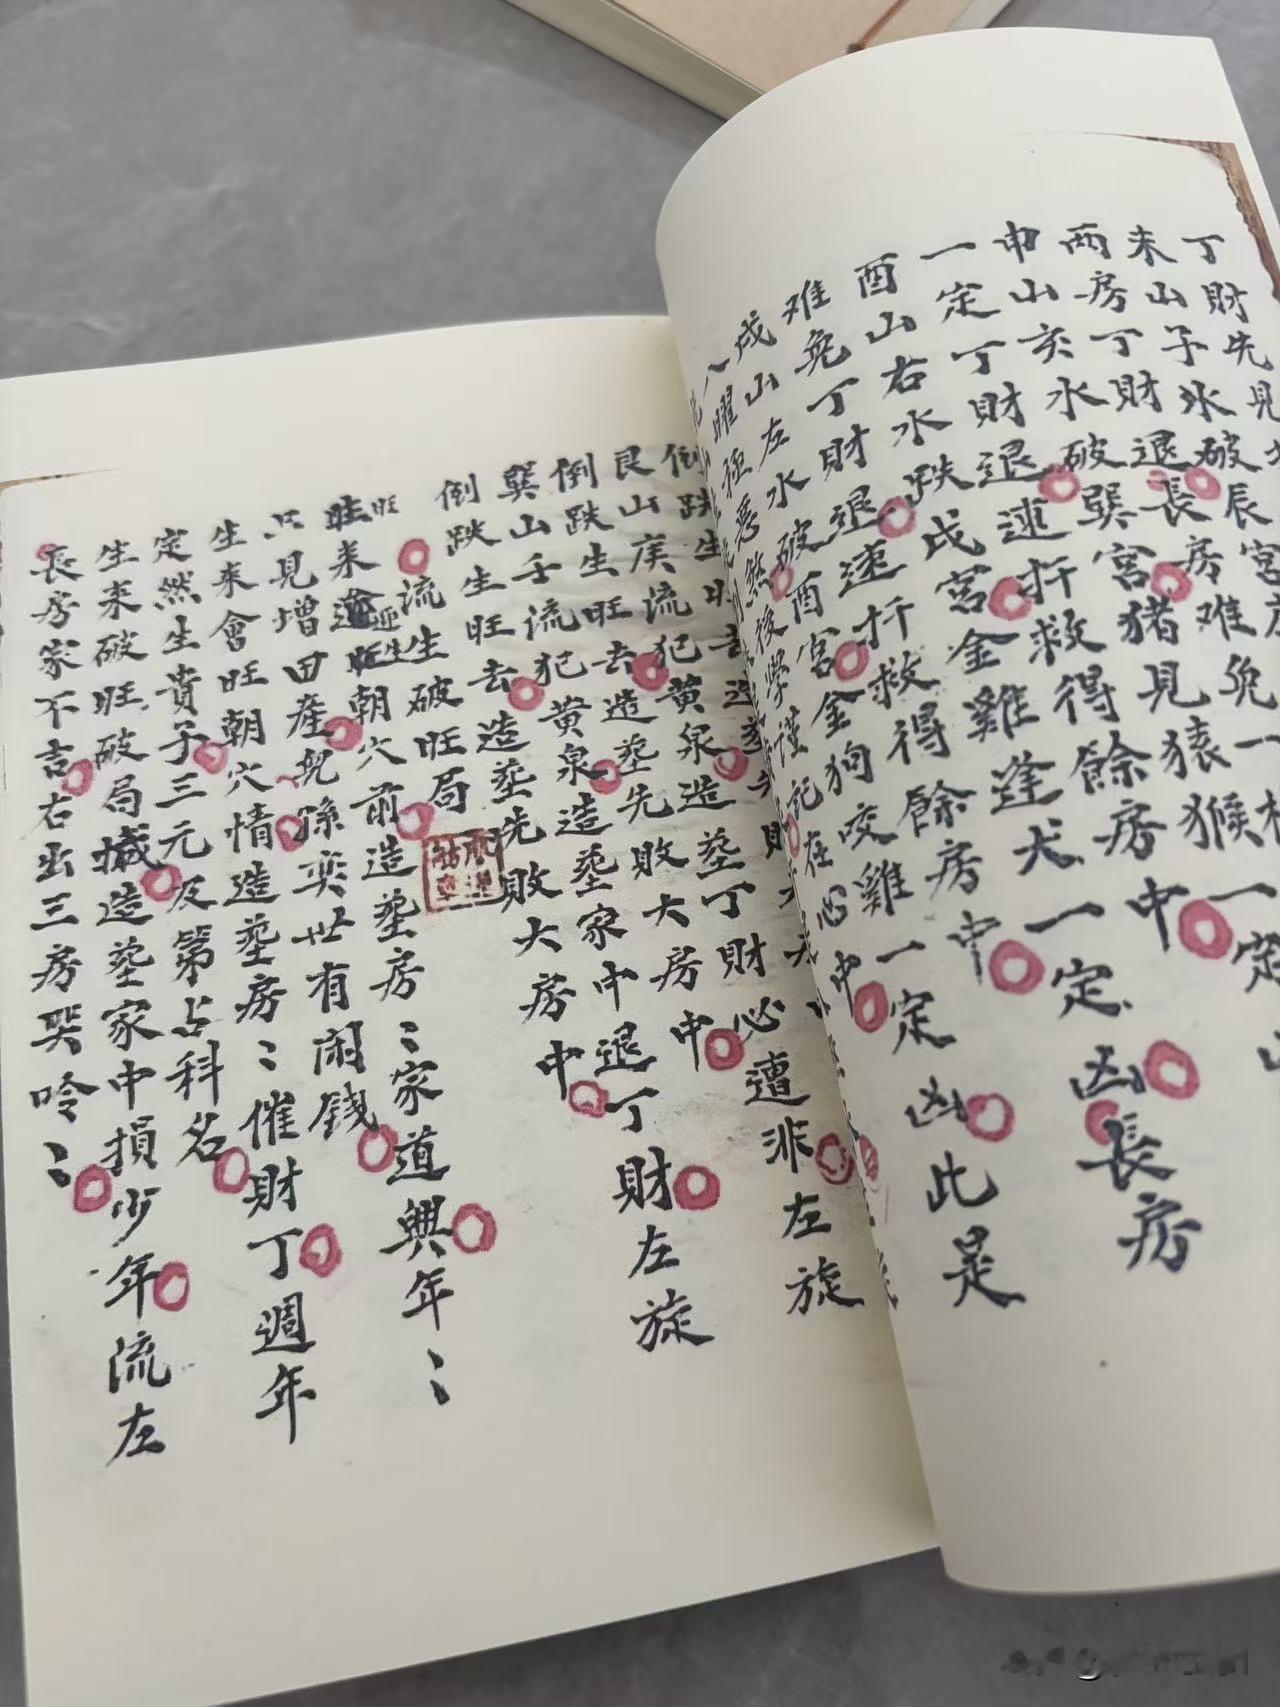 丁財先見
未山子氷破辰宮
两房丁財退長房难免一
申山亥水破巽宮猪見猿猴一定
一定丁財退速扦救得餘房中
酉山右水跌戌宮金雞逢犬一定凶長房
难免丁財退速扦救得餘房中
戌山左水破酉宮金狗咬雞一定凶此是
八曜極惡煞後學謹記在心中
倒跌生旺去造塋
艮山庚流犯黄泉造塋丁財必遭非左旋
倒跌生旺去造塋先敗大房中
巽山壬流犯黄泉造塋家中退丁財左旋
倒跌生旺去造塋先敗大房中
流生破旺局
旺来迎生朝穴前造塋房:家道興年:
只見增田產兒孫奕世有闲錢
生来會旺朝穴情造塋房:催財丁週年
定然生貴子三元及第占科名
生来破旺破局城造塋家中損少年流左
長房家不吉右出三房哭呤: